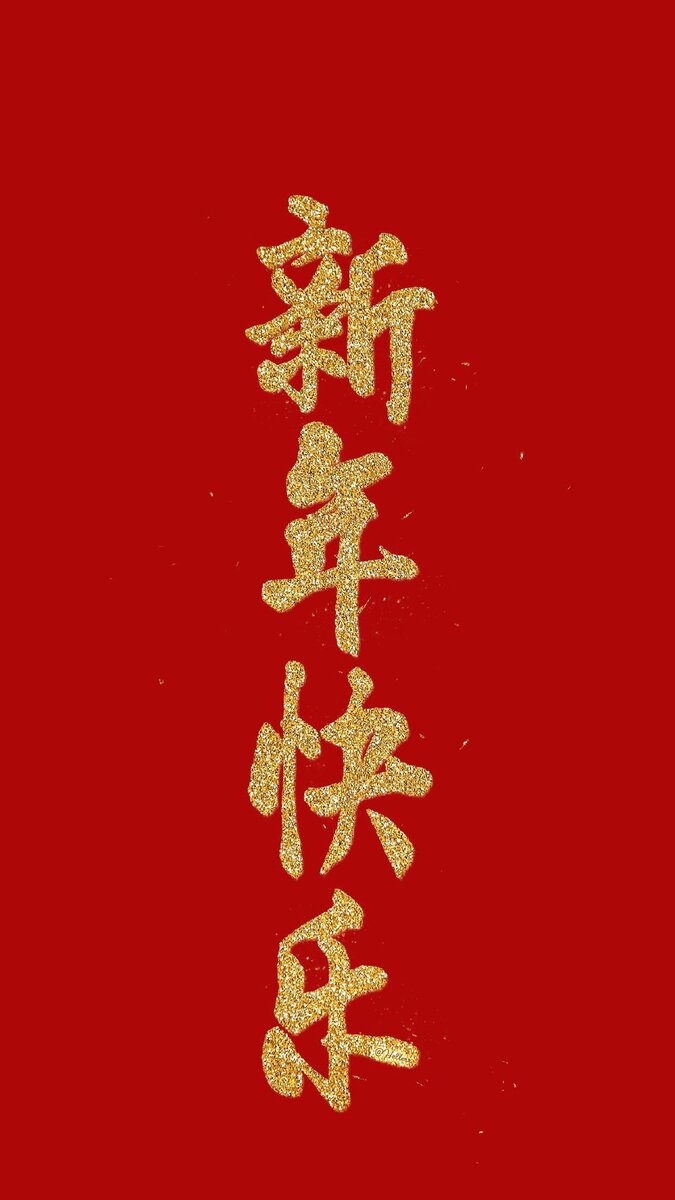 新年快乐